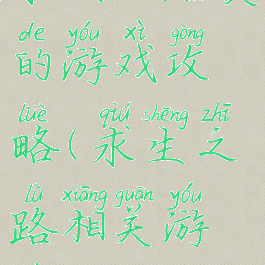 de yóu xì gōng
的游戏攻
lüè qiú shēng zhī
略(求生之
lù xiāng guān yóu
路相关游